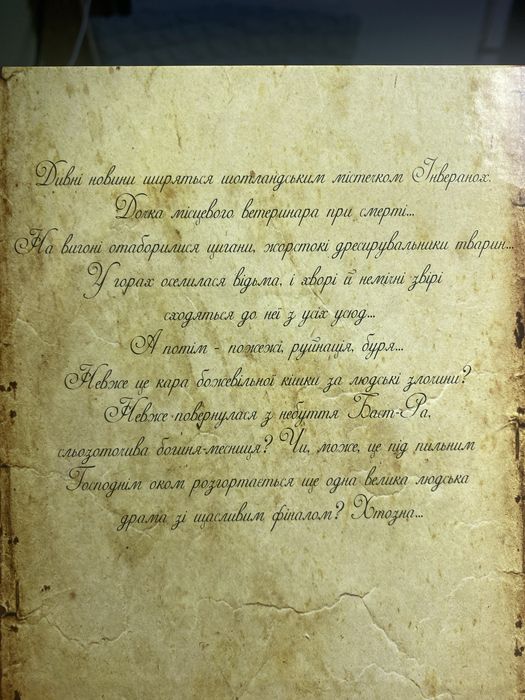 Дивні новини ширяться шотландським містечком Інверанох.
Дочка місцевого ветеринара при смерті...
На вигоні отаборилися цигани, жорстокі дресирувальники тварин...
У горах оселилася відьма, і хворі й немічні звірі
сходяться до неї з усіх усюд...
А потім - пожежі, руйнація, буря...
Невже це кара божевільної кішки за людські злочини?
Невже повернулася з небуття Баст-Ра,
сльозоточива богиня-месниця? Чи, може, це під пильним
Господнім оком розгортається ще одна велика людська
драма зі щасливим фіналом? Хтозна...